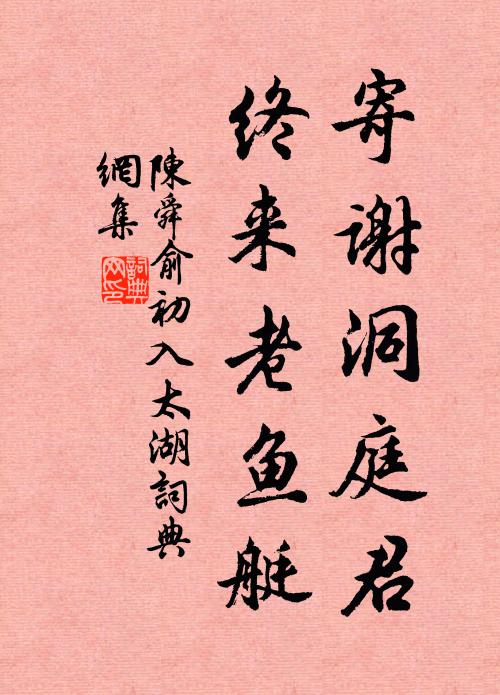 寄谢洞庭君
终来老鱼艇
陳舜俞初入太湖詞典
網集
詞典網印